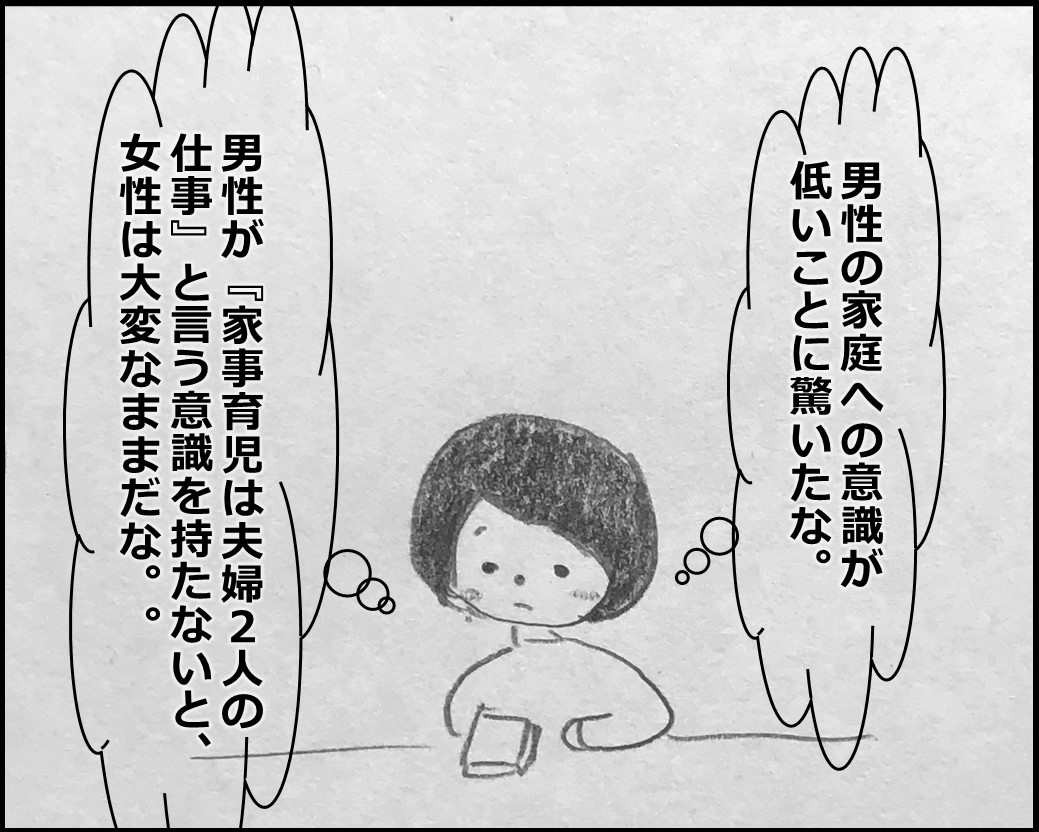 男性の家庭への意識が
低いことに驚いたな。
男性が『家事育児は夫婦2人の
仕事』と言う意識を持たないと、
女性は大変なままだな。。